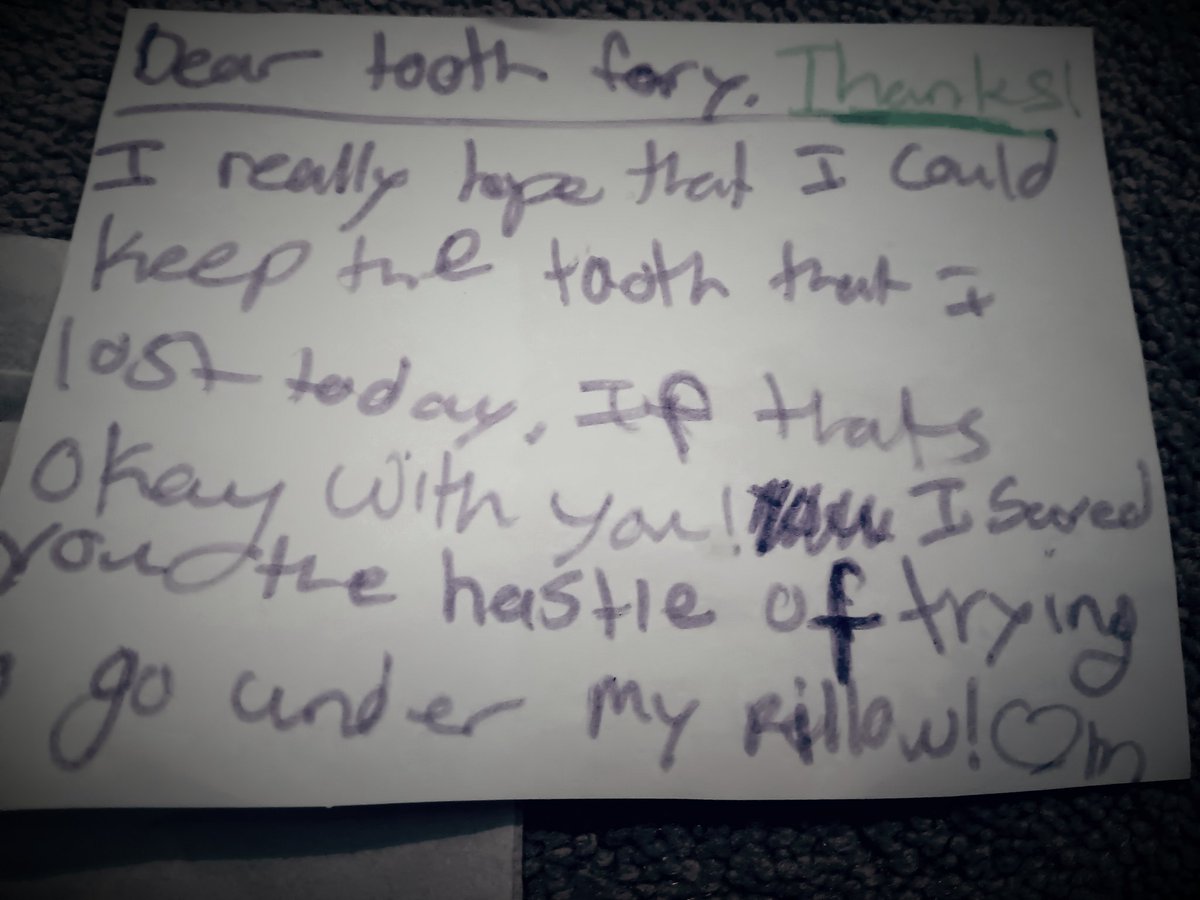 Dear tooth fary. Thanks!
I really hope that I could
keep the tooth that I
lost today. If thats
okay with you! I saved
you the hastle of trying
go under my pillow! ♡m